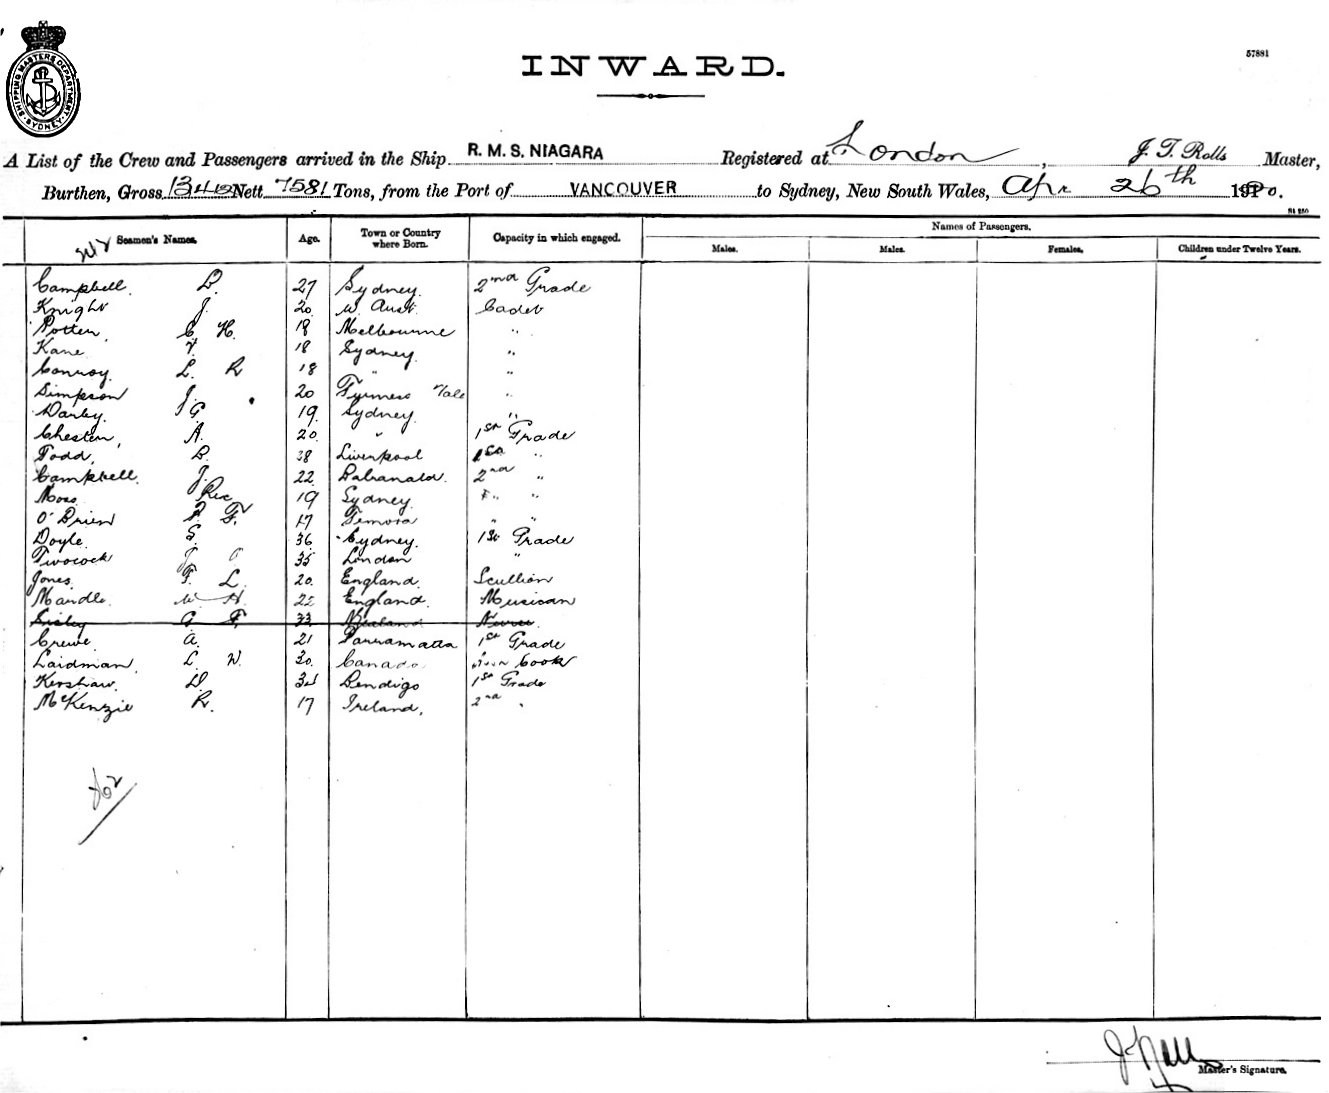 SHIPPING MASTERS DEPARTMENT SYDNEY
INWARD.
57881
A List of the Crew and Passengers arrived in the Ship R. M. S. NIAGARA Registered at London, J. T. Rolls Master,
Burthen, Gross 13415 Nett 7581 Tons, from the Port of VANCOUVER to Sydney, New South Wales, Apr 26th 1920.
Seamen's Names. Age. Town or Country where Born. Capacity in which engaged. Names of Passengers.
Males. Males. Females. Children under Twelve Years.
Campbell. D. 27 Sydney. 2nd Grade
Knight J. 20 W. Aust. Cadet
Potten, C H. 18 Melbourne "
Kane 18 Sydney. "
Conroy. L. R 18 " "
Simpson J. 20 "
Darby. J G. 19 Sydney. "
Chesten, A. 20. " 1st Grade
Todd, D. 38 Liverpool 1st "
Campbell. J. 22 2nd "
Moss Rex 19 Sydney. " "
O'Brien F. 17 Temora " "
Doyle. S. 36 Sydney. 1st Grade
Twocock J 35 London "
Jones. F. L. 20. England. Scullion
Mandle. W H. 22 England. Musican
G F. 33
Crewe. A. 21 Parramatta 1st Grade
Laidman. L. W. 30. Canada. Cook
Kershaw. D. 34 Bendigo 1st Grade
McKenzie R. 17 Ireland. 2nd "
J Rolls
Master's Signature.